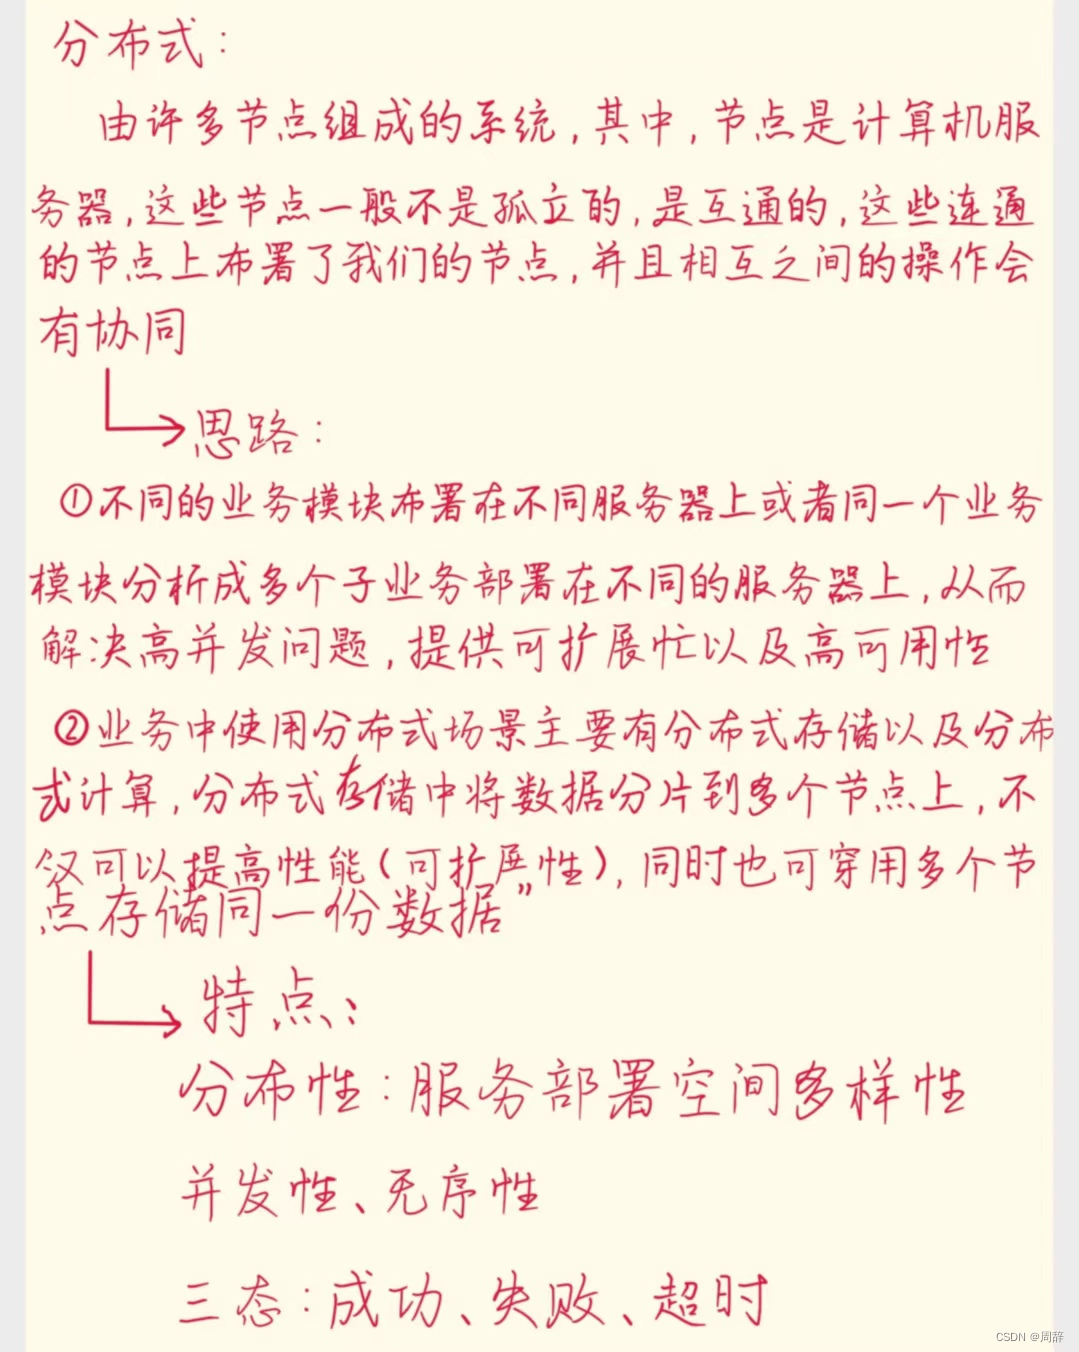 分布式:
由许多节点组成的系统,其中,节点是计算机服
务器,这些节点一般不是孤立的,是互通的,这些连通
的节点上布署了我们的节点,并且相互之间的操作会
有协同
思路:
①不同的业务模块布署在不同服务器上或者同一个业务
模块分析成多个子业务部署在不同的服务器上,从而
解决高并发问题,提供可扩展忙以及高可用性
②业务中使用分布式场景主要有分布式存储以及分布
式计算,分布式存储中将数据分片到多个节点上,不
仅可以提高性能(可扩展性),同时也可穿用多个节
点存储同一份数据”
特点:
分布性:服务部署空间多样性
并发性、无序性
三态:成功、失败、超时
CSDN @周辞